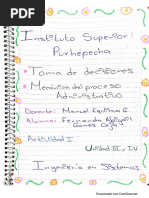 Instituto Superior
Purhépecha
Toma de decisiones
Mecánica del proceso
Administrativo
Docente: Manuel
Fernanda Abigail
Gomes
Actividad I
Unidad III y IV
Ingeniería en Sistemas
Escaneado con CamScanner